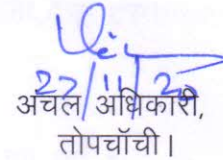 22/11/25
अंचल अधिकारी,
तोपचाँची।